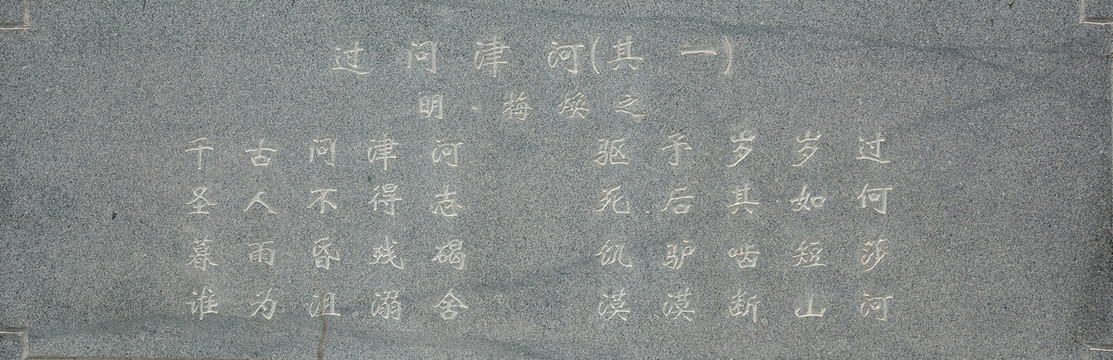 过问津河(其一)
明·梅焕之
千古问津河 驱予岁岁过
圣人不得志 死后其如何
暮雨昏残碣 饥驴啮短莎
谁为沮溺舍 漠漠断山河